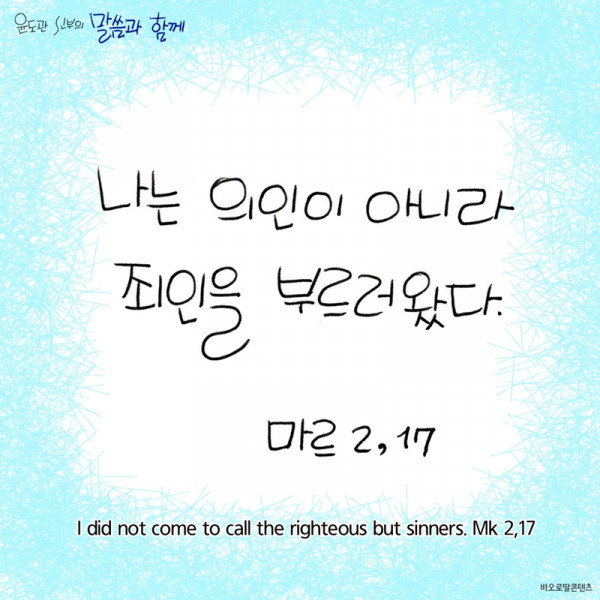 윤도관 신부의 말씀과 함께
나는 의인이 아니라
죄인을 부르러 왔다.
마르 2,17
I did not come to call the righteous but sinners. Mk 2,17
바오로딸콘텐츠